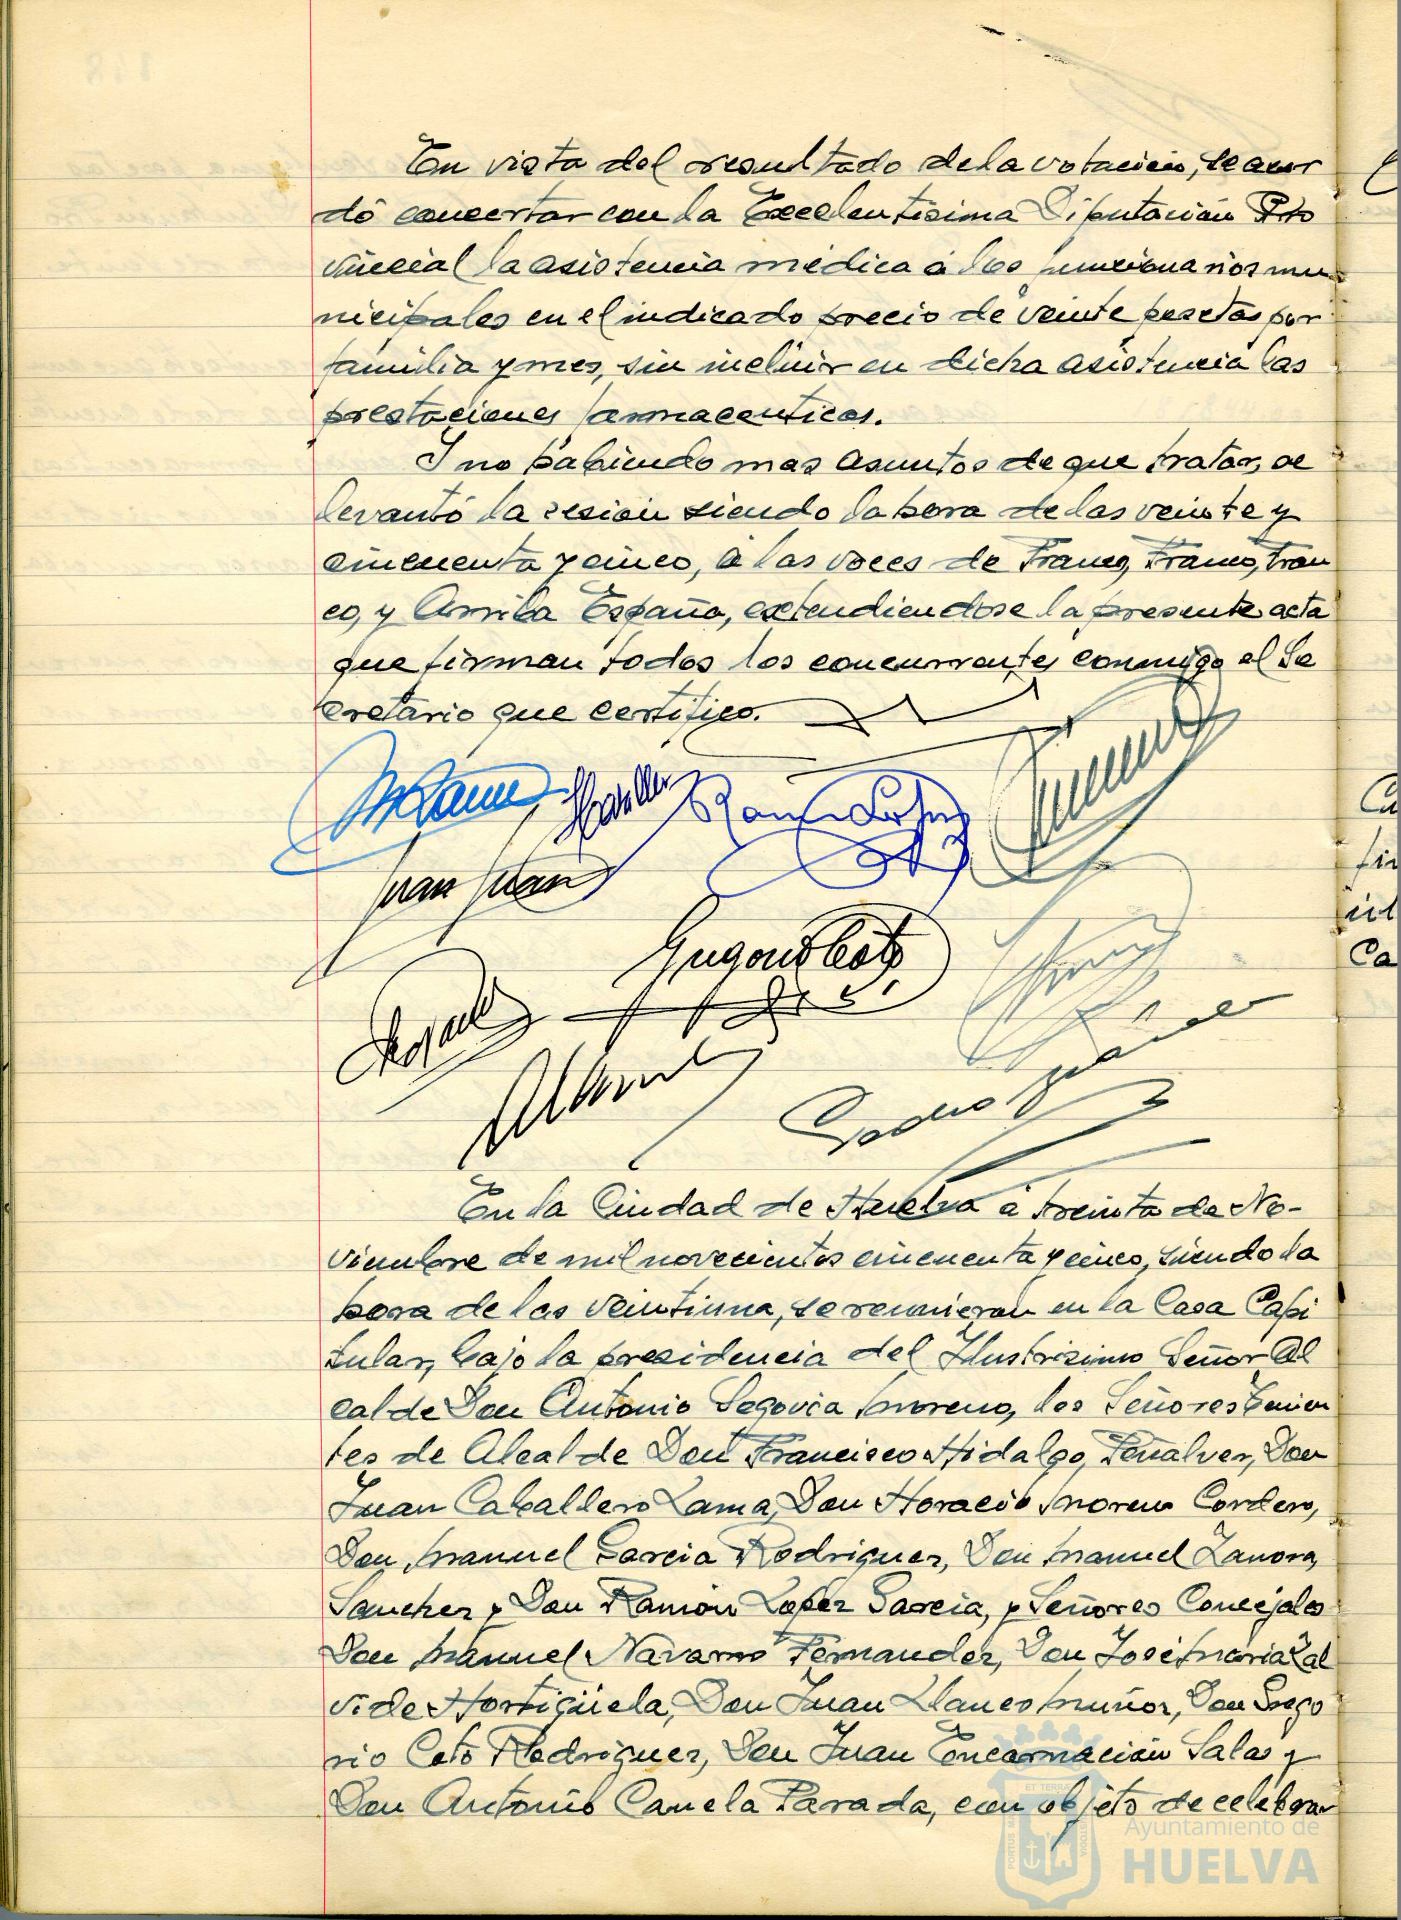 En vista del resultado de la votación, se acor
dó concertar con la Excelentísima Diputación Pro
vincial la asistencia médica á los funcionarios mu
nicipales en el indicado precio de veinte pesetas por
familia y mes, sin incluir en dicha asistencia las
prestaciones farmaceuticas.
Y no habiendo mas asuntos de que tratar, se
levantó la sesión siendo la hora de las veinte y
cincuenta y cinco, á las voces de Franco, Franco, Fran
co, y Arriba España, extendiendose la presente acta
que firman todos los concurrentes conmigo el Se
cretario que certifico.
Ramon López
Juan
Gregorio Coto
Pedro
En la Ciudad de Huelva á treinta de No-
viembre de mil novecientos cincuenta y cinco, siendo la
hora de las veintiuna, se reunieron en la Casa Capi
tular, bajo la presidencia del Ilustrisimo Señor Al
calde Don Antonio Segovia Moreno, los Señores Tenien
tes de Alcalde Don Francisco Hidalgo Peñalver, Don
Juan Caballero Lama, Don Horacio Moreno Cordero,
Don Manuel Garcia Rodriguez, Don Manuel Zamora
Sanchez y Don Ramón López Garcia, y Señores Concejales
Don Manuel Navarro Fernandez, Don José Maria Zal
vide Hortigüela, Don Juan Llanes Muñoz, Don Grego
rio Coto Rodriguez, Don Juan Encarnación Salas y
Don Antonio Canela Parada, con objeto de celebrar
Ayuntamiento de
HUELVA